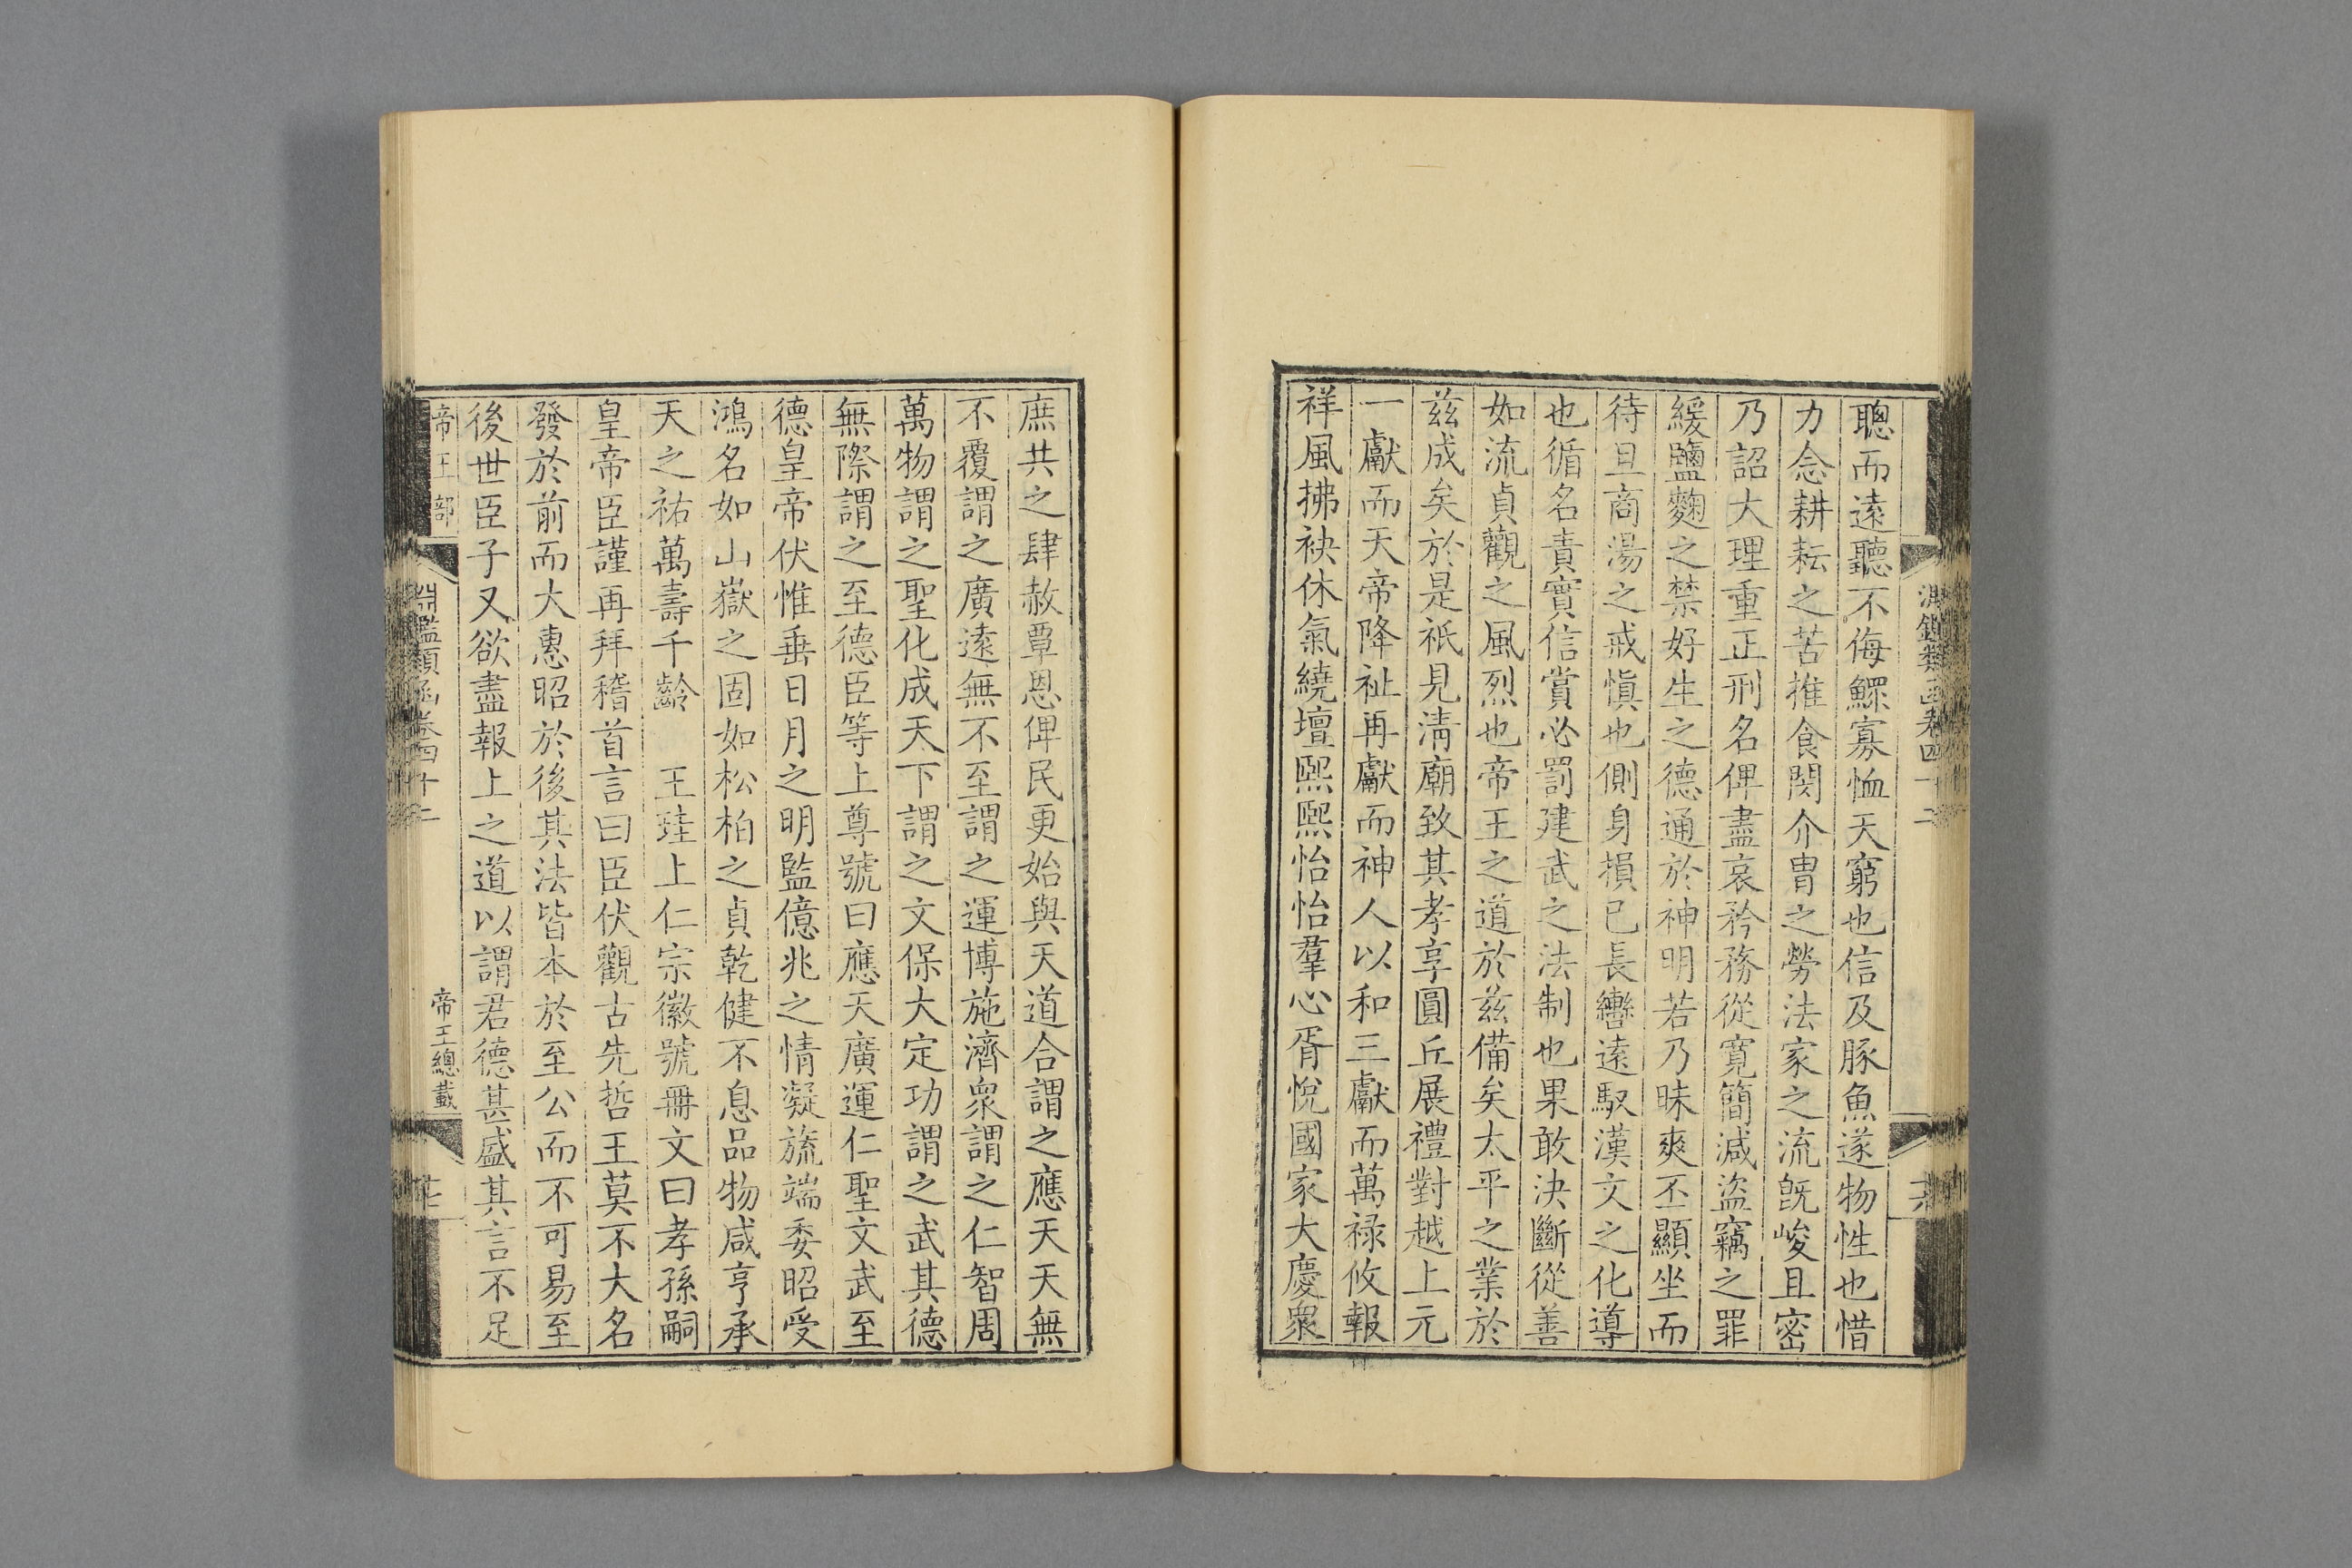 聰而遠聽不侮鰥寡恤天窮也信及豚魚遂物性也惜
力念耕耘之苦推食閔介冑之勞法家之流旣峻且密
乃詔大理重正刑名俾盡哀矜務從寛簡減盜竊之罪
緩鹽麴之禁好生之德通於神明若乃昧爽丕顯坐而
待旦商湯之戒愼也側身損已長轡遠馭漢文之化導
也循名責實信賞必罰建武之法制也果敢決斷從善
如流貞觀之風烈也帝王之道於兹備矣太平之業於
兹成矣於是祇見淸廟致其孝享圓丘展禮對越上元
一獻而天帝降祉再獻而神人以和三獻而萬祿攸報
祥風拂袂休氣繞壇熙熙怡怡羣心胥悅國家大慶衆
庶共之肆赦覃恩俾民更始與天道合謂之應天天無
不覆謂之廣遠無不至謂之運博施濟衆謂之仁智周
萬物謂之聖化成天下謂之文保大定功謂之武其德
無際謂之至德臣等上尊號曰應天廣運仁聖文武至
德皇帝伏惟垂日月之明監億兆之情凝旒端委昭受
鴻名如山嶽之固如松柏之貞乾健不息品物咸亨承
天之祐萬壽千齡　王珪上仁宗徽號冊文曰孝孫嗣
皇帝臣謹再拜稽首言曰臣伏觀古先哲王莫不大名
發於前而大惠昭於後其法皆本於至公而不可易至
後世臣子又欲盡報上之道以謂君德甚盛其言不足
帝王部
淵鑑類函卷四十二
帝王總載